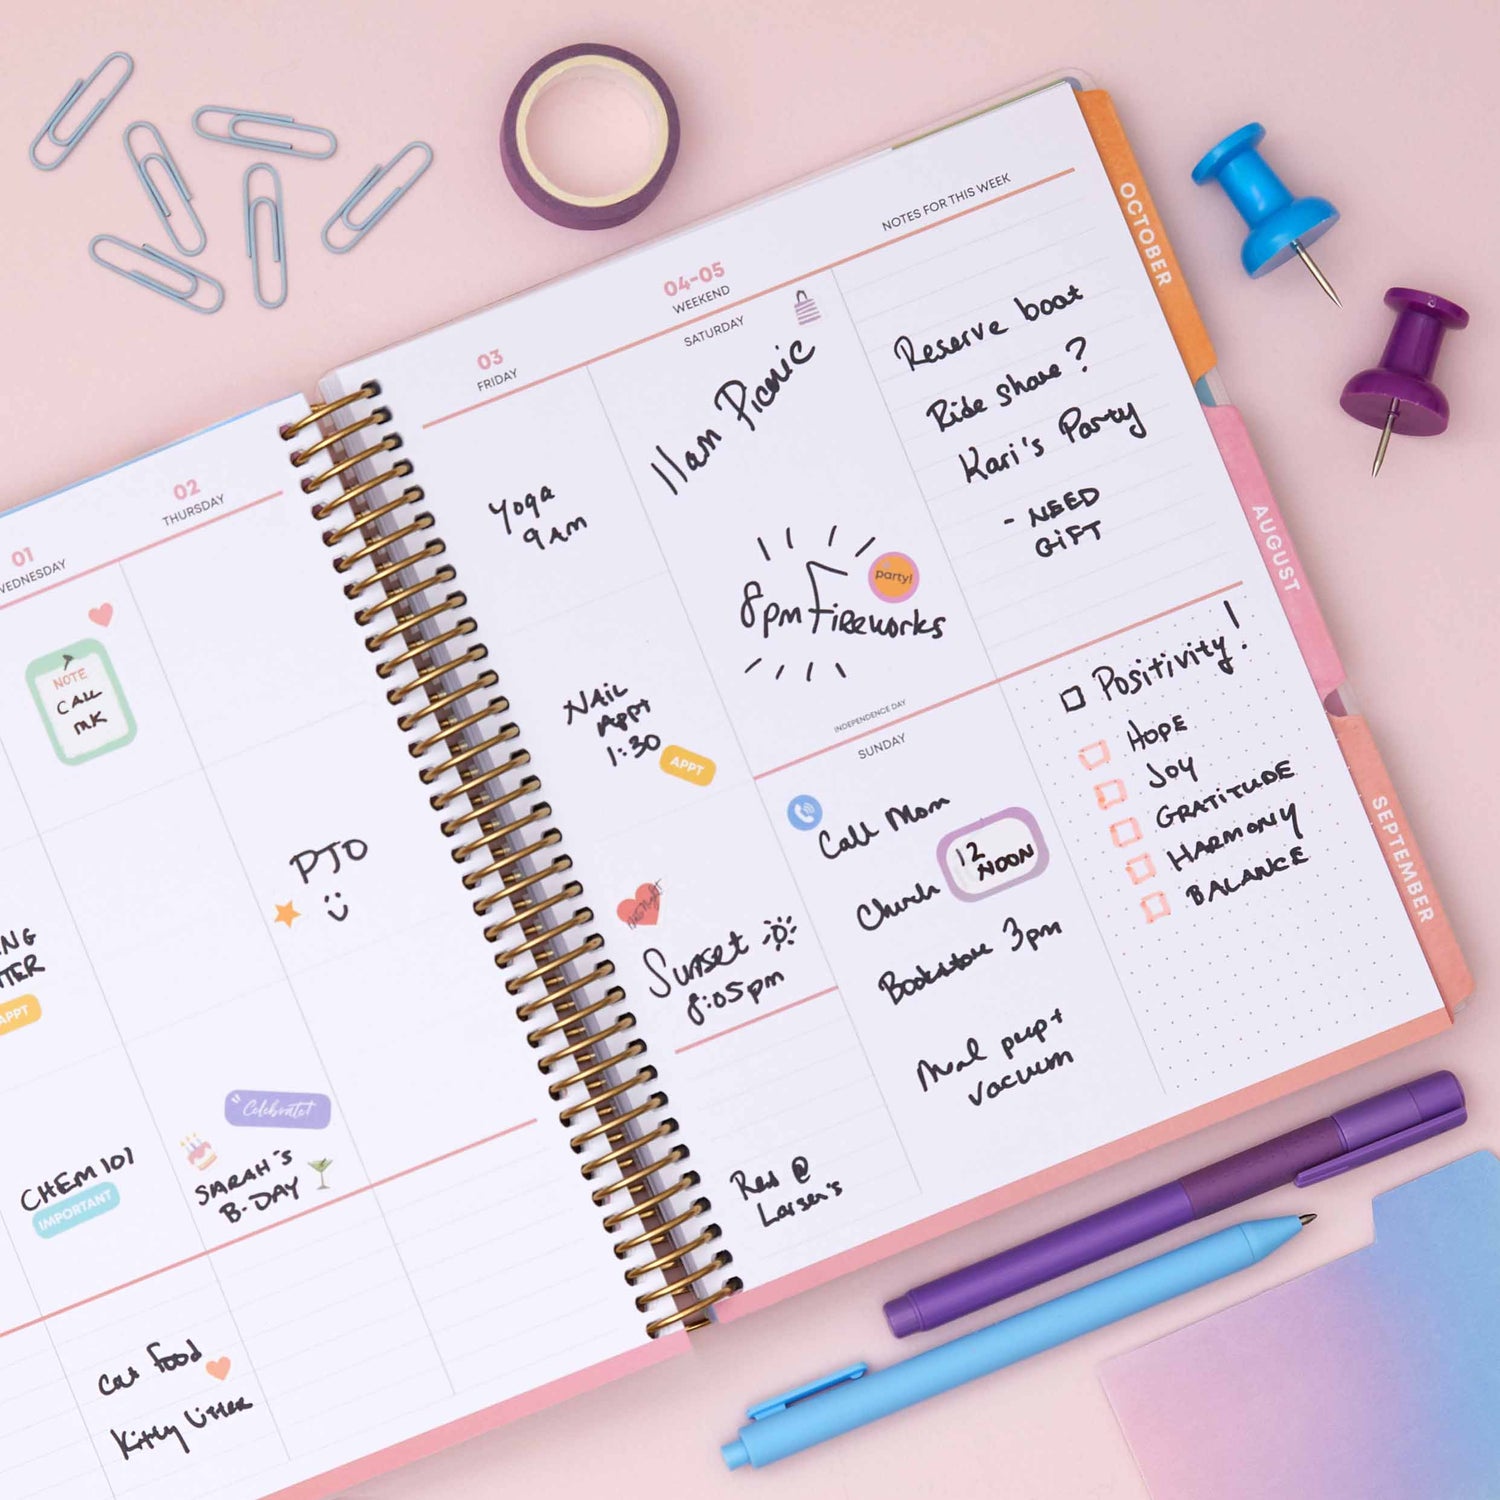 01
WEDNESDAY
NOTE
CALL
MK
NG
TTER
APPT
CHEM 101
IMPORTANT
02
THURSDAY
PTO
Celebrate!
SARAH'S
B-DAY
Cat Food
Kitty Litter
03
FRIDAY
Yoga
9 AM
NAIL
APPT
1:30
APPT
Date Night
Sunset
8:05pm
Res @
Larsen's
04-05
WEEKEND
SATURDAY
11am Picnic
party!
8pm Fireworks
INDEPENDENCE DAY
SUNDAY
Call Mom
Church
12
NOON
Bookstore 3pm
Meal prep +
vacuum
NOTES FOR THIS WEEK
Reserve boat
Ride share?
Kari's Party
- NEED
GIFT
Positivity!
HOPE
JOY
GRATITUDE
HARMONY
BALANCE
OCTOBER
AUGUST
SEPTEMBER